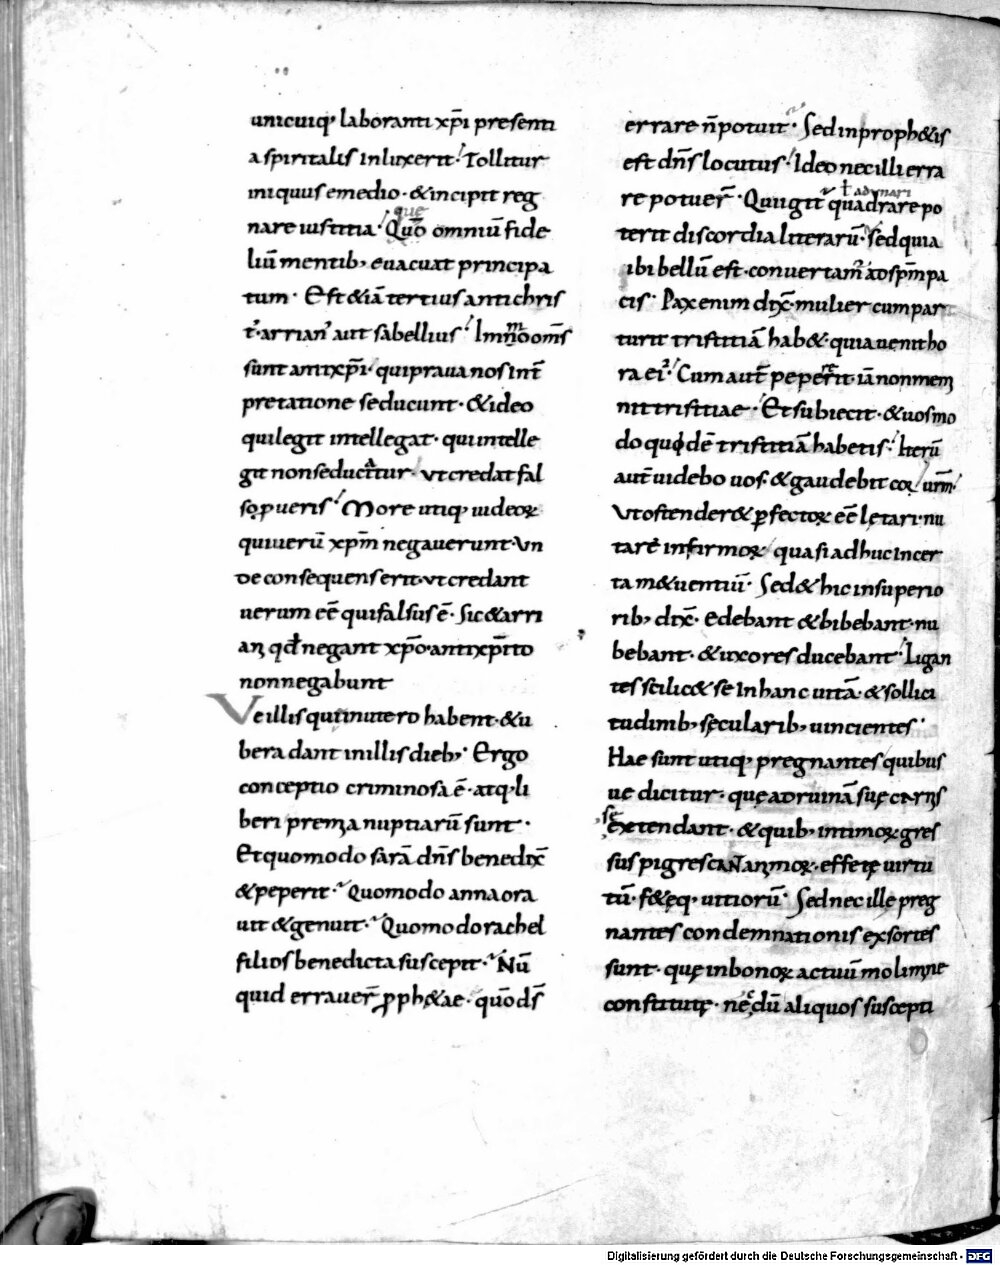 unicuiq; laboranti xp̄i presenti
a spiritalis inluxerit. Tollitur
iniquus emedio. & incipit reg
nare iustitia. Quō omniū fide
que
liū mentib; euacuat principa
tum. Est &iā tertius antichris
t' arrian' aut sabellius. Im̄mo om̄s
sunt antixp̄i. qui praua nos int̄
pretatione seducunt. & ideo
qui legit intellegat. qui intelle
git non seducitur. vt credat fal
so pueris. More utiq; iudeoꝝ
qui uerū xp̄m negauerunt. Vn
de consequens erit. vt credant
uerum eē qui falsus ē. Sic & arri
ani qd̄ negant xp̄o. antixp̄to
non negabunt
Ve illis qui in utero habent. & u
bera dant in illis dieb; Ergo
conceptio criminosa ē. atq; li
beri premia nuptiarū sunt.
Et quomodo sarā dn̄s benedix̄
& peperit. Quomodo anna ora
uit & genuit. Quomodo rachel
filios benedicta suscepit. Nū
quid errauer̄ ꝓph&ae. quōd ds̄
errare n̄ potuit. Sed in proph&is
est dn̄s locutus. Ideo nec illi erra
re potuer̄. Qui igit̄ quadrare po
ł adunari
terit discordia literarū. Sed quia
ibi bellū est. conuertam̄ ad sp̄m pa
cis. Pax enim dix̄. mulier cum par
turit tristitiā hab&. quia uenit ho
ra ei'. Cum aut̄ pepererit. iā non mem
nit tristitiae. Et subiecit. & uos mo
do quidē tristitiā habetis. Iterū
aut̄ uidebo uos. & gaudebit cor urm̄.
Vt ostender& ꝑfectoꝝ eē lętari. nu
tare infirmoꝝ quasi adhuc incer
ta m&uentiū. Sed & hic in superio
rib; dix̄. Edebant & bibebant. nu
bebant. & uxores ducebant. Ligan
tes scilic& se in hanc uitā. & sollici
tudinib; sęcularib; uincientes.
Hae sunt utiq; pregnantes quibus
uę dicitur. quę ad ruinā suę carnis
se extendant. & quib; intimoꝝ gres
sus pigrescant animoꝝ. effetę uirtu
tū. f&ęq; uitiorū. Sed nec ille preg
nantes condemnationis exsortes
sunt. quę in bonoꝝ actuū molimine
constitutę. necdū aliquos suscepti
Digitalisierung gefördert durch die Deutsche Forschungsgemeinschaft - DFG